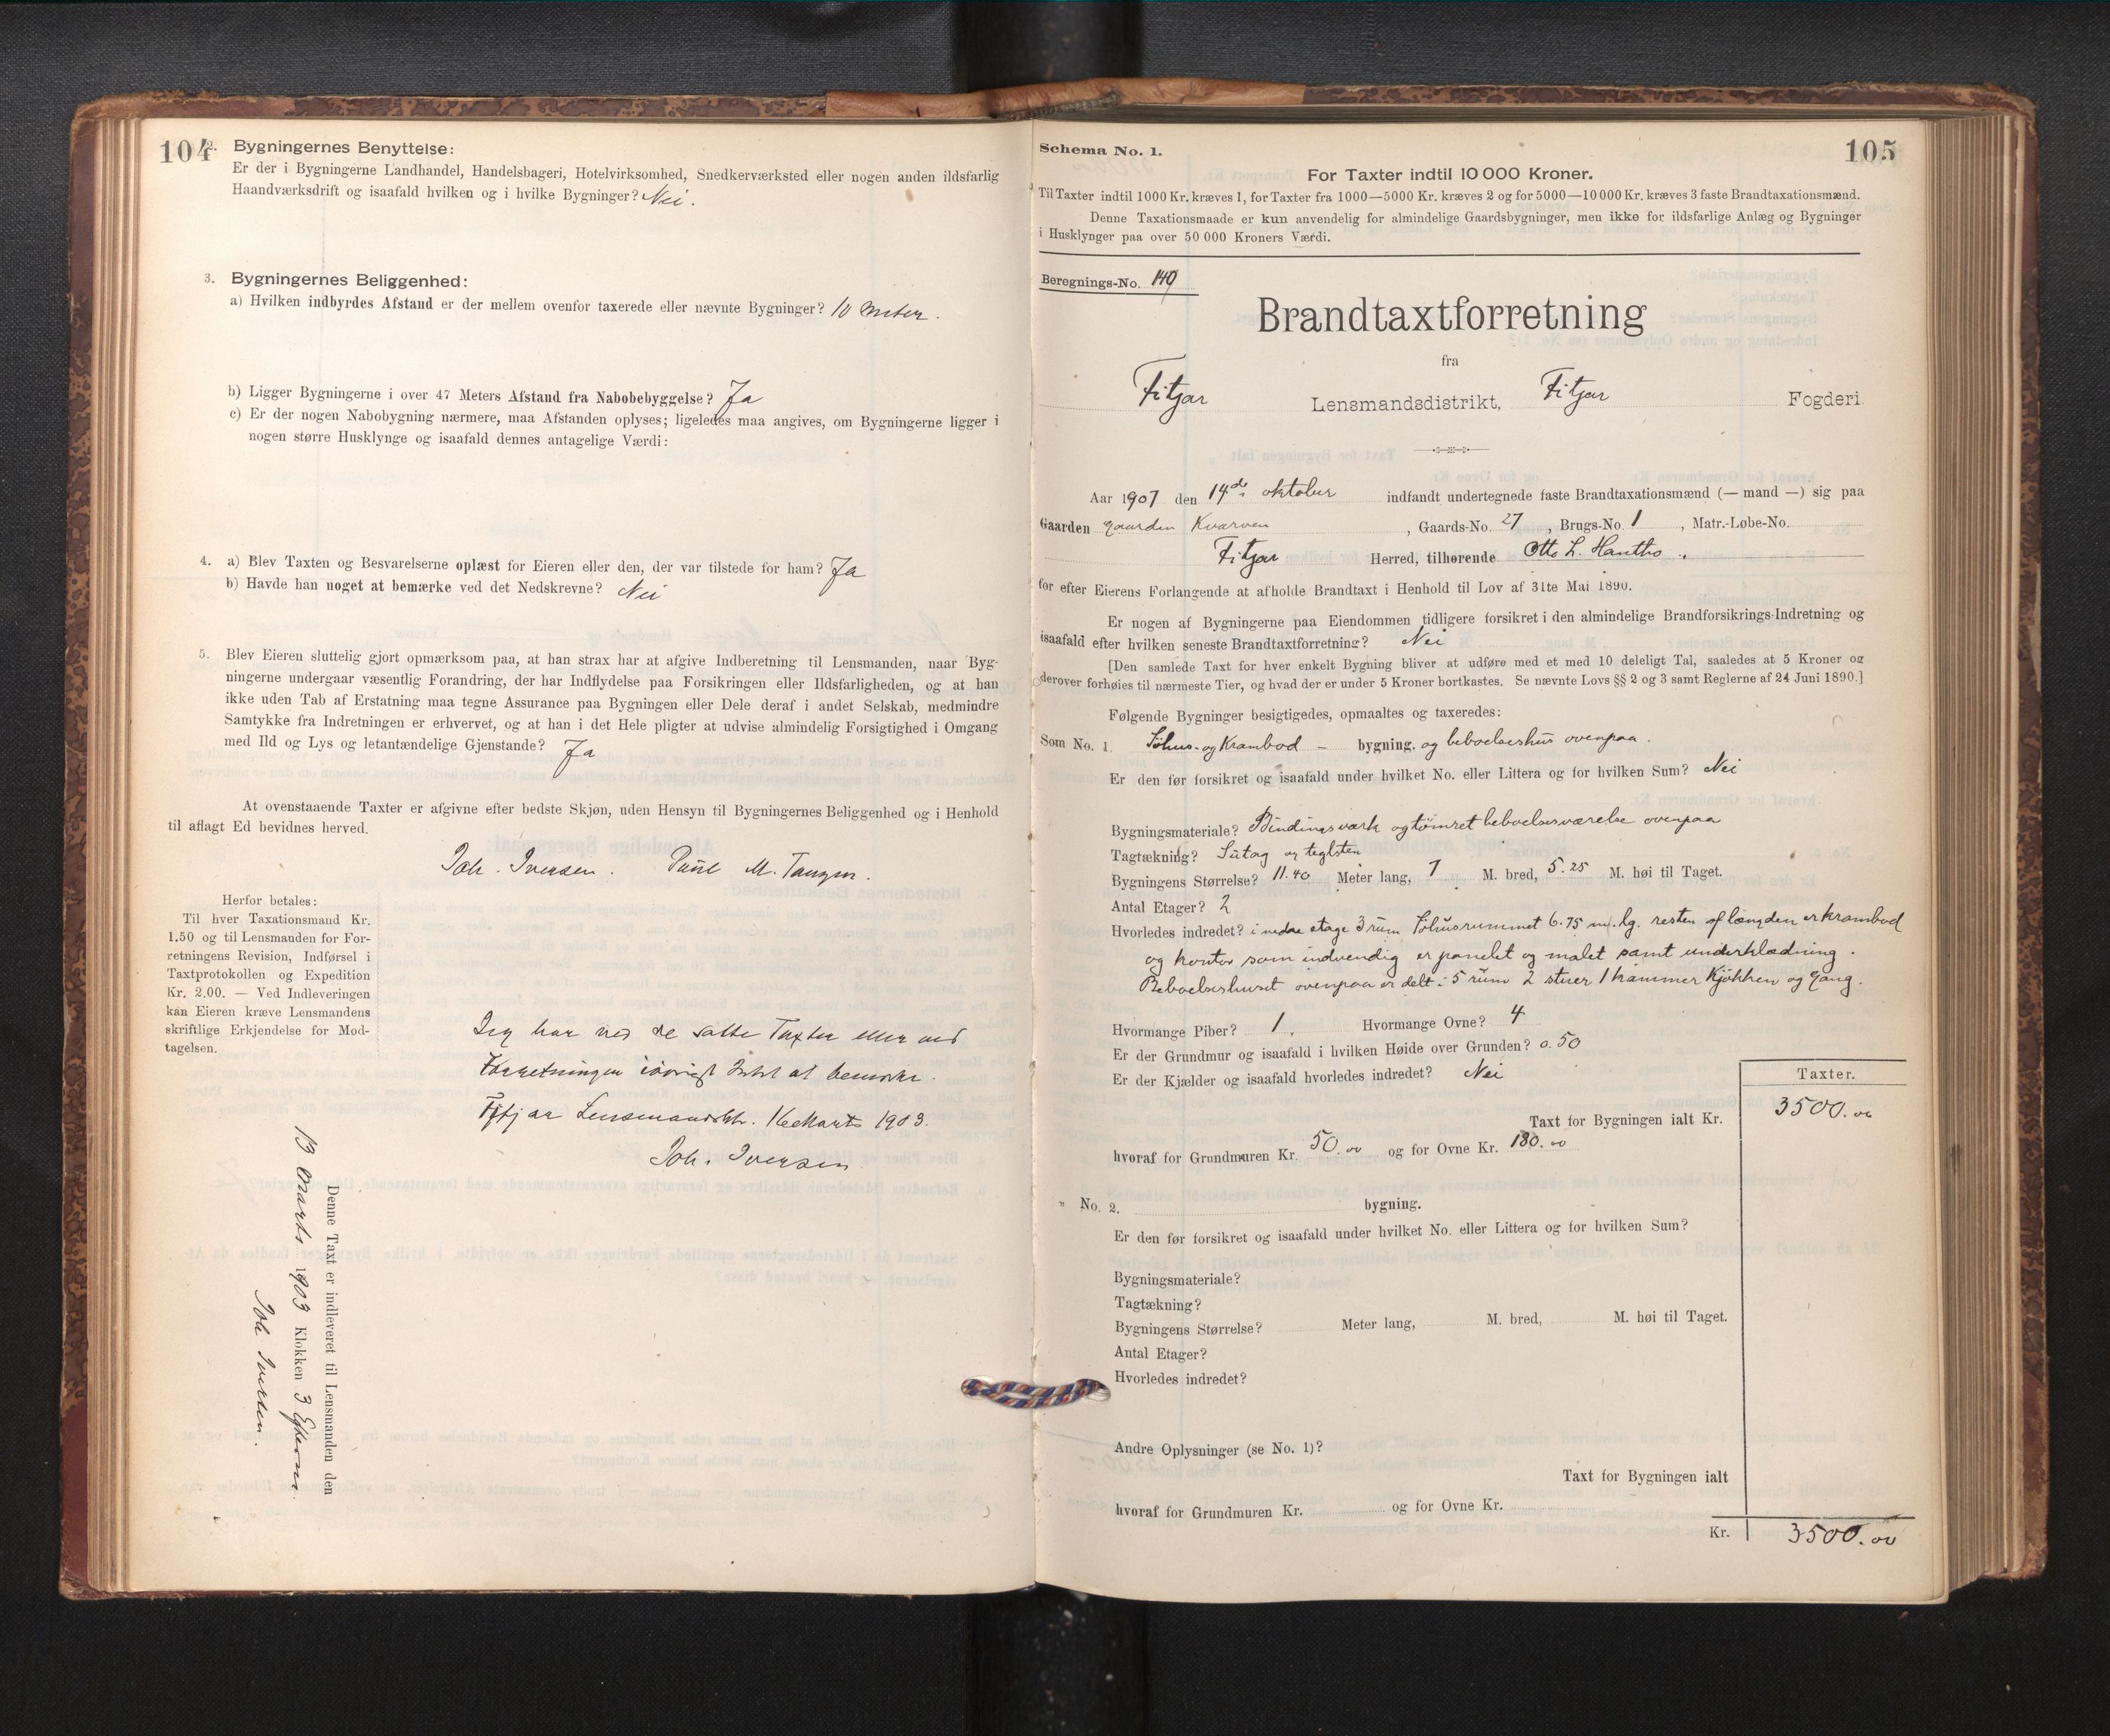 104
2. Bygningernes Benyttelse:
Er der i Bygningerne Landhandel, Handelsbageri, Hotelvirksomhed, Snedkerværksted eller nogen anden ildsfarlig
Haandværksdrift og isaafald hvilken og i hvilke Bygninger? Nei.
3. Bygningernes Beliggenhed:
a) Hvilken indbyrdes Afstand er der mellem ovenfor taxerede eller nævnte Bygninger? 10 meter.
b) Ligger Bygningerne i over 47 Meters Afstand fra Nabobebyggelse? Ja
c) Er der nogen Nabobygning nærmere, maa Afstanden oplyses; ligeledes maa angives, om Bygningerne ligger i
nogen større Husklynge og isaafald dennes antagelige Værdi:
4. a) Blev Taxten og Besvarelserne oplæst for Eieren eller den, der var tilstede for ham? Ja
b) Havde han noget at bemærke ved det Nedskrevne? Nei
5. Blev Eieren sluttelig gjort opmærksom paa, at han strax har at afgive Indberetning til Lensmanden, naar Byg-
ningerne undergaar væsentlig Forandring, der har Indflydelse paa Forsikringen eller Ildsfarligheden, og at han
ikke uden Tab af Erstatning maa tegne Assurance paa Bygningen eller Dele deraf i andet Selskab, medmindre
Samtykke fra Indretningen er erhvervet, og at han i det Hele pligter at udvise almindelig Forsigtighed i Omgang
med Ild og Lys og letantændelige Gjenstande? Ja
At ovenstaaende Taxter er afgivne efter bedste Skjøn, uden Hensyn til Bygningernes Beliggenhed og i Henhold
til aflagt Ed bevidnes herved.
Joh. Iversen. Paul M. Tangen.
Herfor betales:
Til hver Taxationsmand Kr.
1.50 og til Lensmanden for For-
retningens Revision, Indførsel i
Taxtprotokollen og Expedition
Kr. 2.00. — Ved Indleveringen
kan Eieren kræve Lensmandens
skriftlige Erkjendelse for Mod-
tagelsen.
Jeg har ved de satte Taxter eller ved
Forretningen iøvrigt Intet at bemærke.
Fitjar Lensmandsk. 16de Marts 1903.
Joh. Iversen
Denne Taxt er indleveret til Lensmanden den
13 Marts 1903 Klokken 3 Efterm.
Joh Iversen.
105
Schema No. 1.
For Taxter indtil 10 000 Kroner.
Til Taxter indtil 1000 Kr. kræves 1, for Taxter fra 1000—5000 Kr. kræves 2 og for 5000—10 000 Kr. kræves 3 faste Brandtaxationsmænd.
Denne Taxationsmaade er kun anvendelig for almindelige Gaardsbygninger, men ikke for ildsfarlige Anlæg og Bygninger
i Husklynger paa over 50 000 Kroners Værdi.
Beregnings-No. 140
Brandtaxtforretning
fra
Fitjar Lensmandsdistrikt, Fitjar Fogderi
Aar 1907 den 14de oktober indfandt undertegnede faste Brandtaxationsmænd (— mand —) sig paa
Gaarden gaarden Kvarven, Gaards-No. 27, Brugs-No. 1, Matr.-Løbe-No.
Fitjar Herred, tilhørende Otto L. Hantho.
for efter Eierens Forlangende at afholde Brandtaxt i Henhold til Lov af 31te Mai 1890.
Er nogen af Bygningerne paa Eiendommen tidligere forsikret i den almindelige Brandforsikrings-Indretning og
isaafald efter hvilken seneste Brandtaxtforretning? Nei
[Den samlede Taxt for hver enkelt Bygning bliver at udføre med et med 10 deleligt Tal, saaledes at 5 Kroner og
derover forhøies til nærmeste Tier, og hvad der er under 5 Kroner bortkastes. Se nævnte Lovs §§ 2 og 3 samt Reglerne af 24 Juni 1890.]
Følgende Bygninger besigtigedes, opmaaltes og taxeredes:
Som No. 1. Søhus- og Krambod – bygning. og beboelseshus ovenpaa.
Er den før forsikret og isaafald under hvilket No. eller Littera og for hvilken Sum? Nei
Bygningsmateriale? Bindingsværk og tømret beboelsesværelse ovenpaa
Tagtækning? Sutag og teglsten
Bygningens Størrelse? 11.40 Meter lang, 7 M. bred, 5.25 M. høi til Taget.
Antal Etager? 2
Hvorledes indredet? i nedre etage 3 rum Søhusrummet 6.75 m. lg. resten af længden er krambod
og kontor som indvendig er panelet og malet samt underklædning.
Beboelseshuset ovenpaa er delt i 5 rum 2 stuer 1 kammer Kjøkken og Gang.
Hvormange Piber? 1. Hvormange Ovne? 4
Er der Grundmur og isaafald i hvilken Høide over Grunden? 0.50
Er der Kjælder og isaafald hvorledes indredet? Nei
Taxter.
Taxt for Bygningen ialt Kr. 3500.00
hvoraf for Grundmuren Kr. 50.00 og for Ovne Kr. 180.00
" No. 2. bygning.
Er den før forsikret og isaafald under hvilket No. eller Littera og for hvilken Sum?
Bygningsmateriale?
Tagtækning?
Bygningens Størrelse? Meter lang, M. bred, M. høi til Taget.
Antal Etager?
Hvorledes indredet?
Andre Oplysninger (se No. 1)?
Taxt for Bygningen ialt
hvoraf for Grundmuren Kr. og for Ovne Kr.
Kr. 3500.00